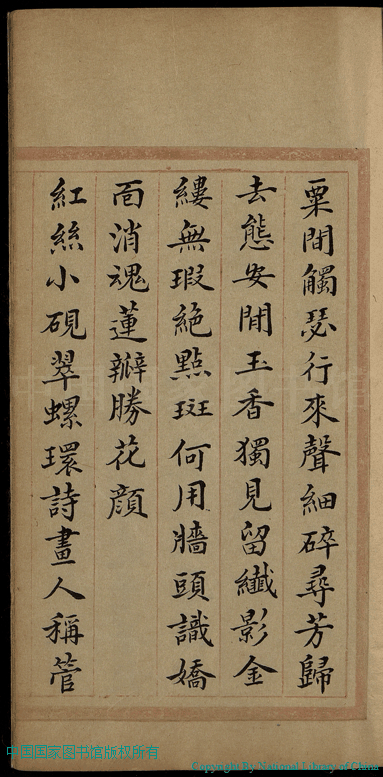 粟間觸瑟行來聲細碎尋芳歸
去態安閒玉香獨見留纖影金
縷無瑕絶點斑何用牆頭識嬌
面消魂蓮瓣勝花顔
紅絲小硯翠螺環詩畫人稱管
中国国家图书馆版权所有
Copyright By National Library of China